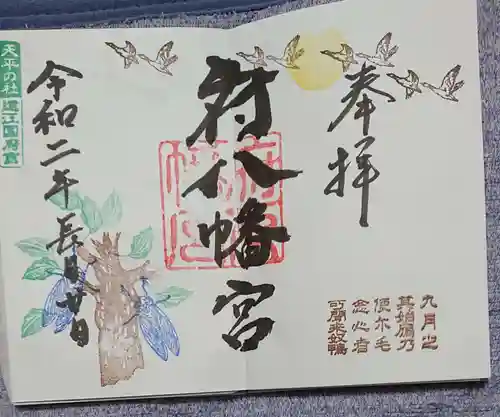 奉拝
府八幡宮
令和二年長月廿日
天平の社 遠江国府宮
九月之
其始鴈乃
使尓毛
念心者
可聞来奴鴨